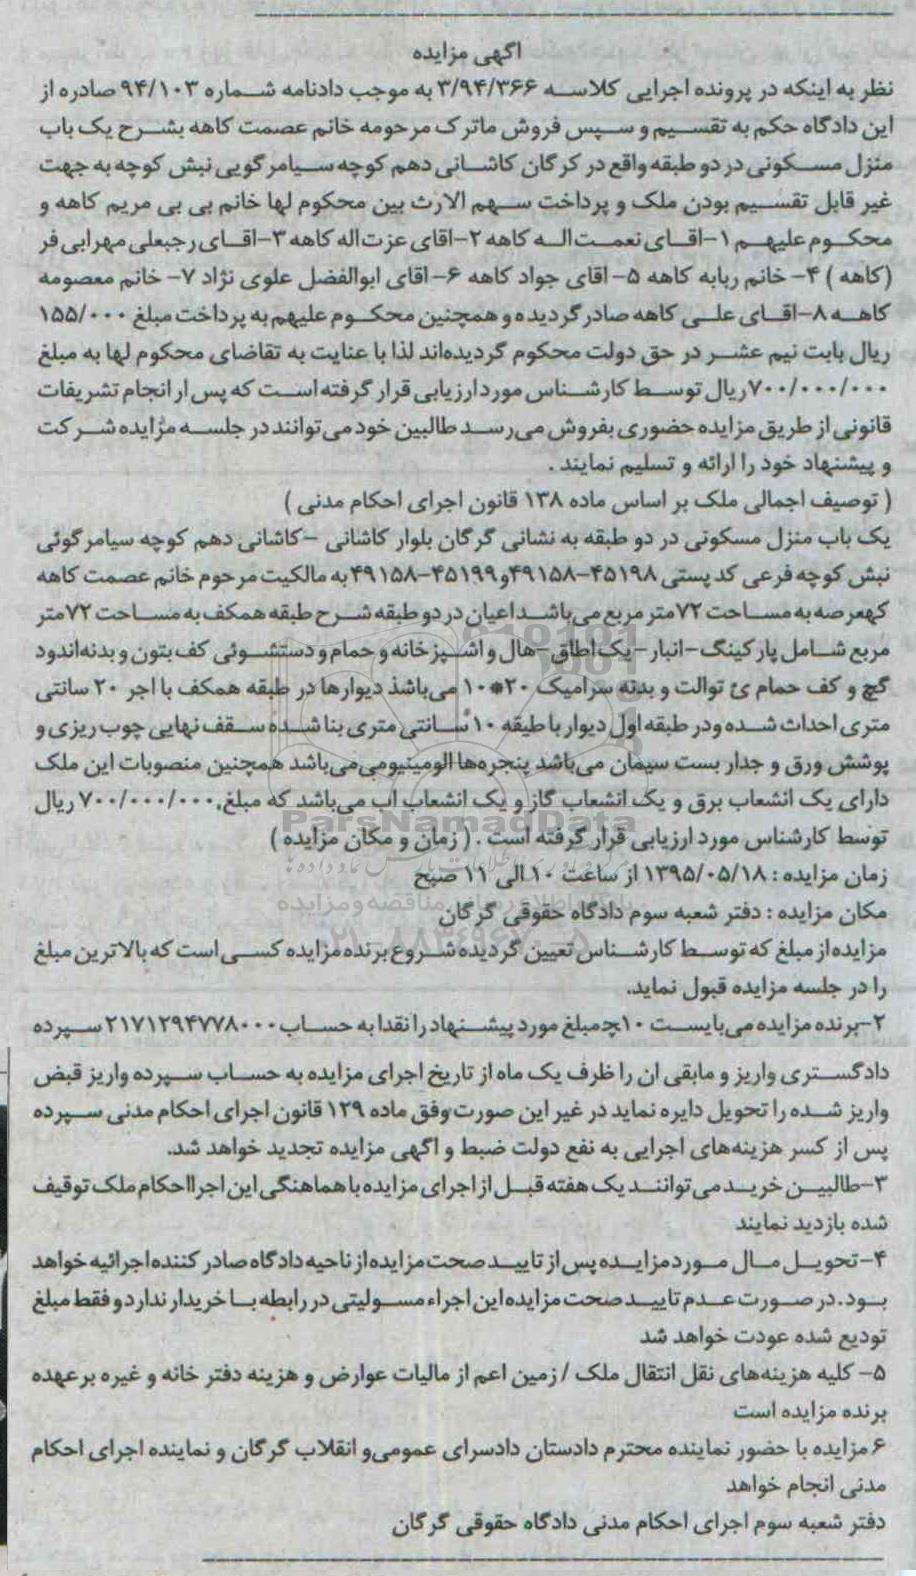 اگهی مزایده
نظر به اینکه در پرونده اجرایی کلاسه ۳/۹۴/۳۶۶ به موجب دادنامه شماره ۹۴/۱۰۳ صادره از
این دادگاه حکم به تقسیم و سپس فروش ماترک مرحومه خانم عصمت کاهه بشرح یک باب
منزل مسکونی در دو طبقه واقع در کرگان کاشانی دهم کوچه سیامرگویی نبش کوچه به جهت
غیر قابل تقسیم بودن ملک و پرداخت سهم الارث بین محکوم لها خانم بی بی مریم کاهه و
محکوم علیهم ۱-اقای نعمت اله کاهه ۲-اقای عزت‌اله کاهه ۳-اقای رجبعلی مهرابی فر
(کاهه ) ۴- خانم ربابه کاهه ۵- اقای جواد کاهه ۶- اقای ابوالفضل علوی نژاد ۷- خانم معصومه
کاهه ۸-اقای علی کاهه صادر گردیده و همچنین محکوم علیهم به پرداخت مبلغ ۱۵۵/۰۰۰
ریال بابت نیم عشر در حق دولت محکوم گردیده‌اند لذا با عنایت به تقاضای محکوم لها به مبلغ
۷۰۰/۰۰۰/۰۰۰ریال توسط کارشناس مورد ارزیابی قرار گرفته است که پس ار انجام تشریفات
قانونی از طریق مزایده حضوری بفروش می‌رسد طالبین خود می‌توانند در جلسه مزایده شرکت
و پیشنهاد خود را ارائه و تسلیم نمایند .
( توصیف اجمالی ملک بر اساس ماده ۱۳۸ قانون اجرای احکام مدنی )
یک باب منزل مسکونی در دو طبقه به نشانی گرگان بلوار کاشانی -کاشانی دهم کوچه سیامرگوئی
نبش کوچه فرعی کد پستی ۴۵۱۹۸-۴۹۱۵۸و۴۵۱۹۹-۴۹۱۵۸ به مالکیت مرحوم خانم عصمت کاهه
کهعرصه به مساحت ۷۲متر مربع می‌باشد اعیان در دو طبقه شرح طبقه همکف به مساحت ۷۲متر
مربع شامل پارکینگ-انبار-یک اطاق-هال و اشپزخانه و حمام و دستشوئی کف بتون و بدنه‌اندود
گچ و کف حمام ئ توالت و بدنه سرامیک ۲۰*۱۰ می‌باشذ دیوارها در طبقه همکف با اجر ۲۰ سانتی
متری احداث شده ودر طبقه اول دیوار با طیقه ۱۰ سانتی متری بنا شده سقف نهایی چوب ریزی و
پوشش ورق و جدار بست سیمان می‌باشد پنجره‌ها الومینیومی‌می‌باشد همچنین منصوبات این ملک
دارای یک انشعاب برق و یک انشعاب گاز و یک انشعاب اب می‌باشد که مبلغ,۷۰۰/۰۰۰/۰۰۰ ریال
ParsNamadData
توسط کارشناس مورد ارزیابی قرار گرفته است . ( زمان و مکان مزایده )
زمان مزایده : ۱۳۹۵/۰۵/۱۸ از ساعت ۱۰ الی ۱۱ صبح
مکان مزایده : دفتر شعبه سوم دادگاه حقوقی گرگان
مزایده از مبلغ که توسط کارشناس تعیین گردیده شروع برنده مزایده کسی است که بالاترین مبلغ
را در جلسه مزایده قبول نماید.
۲-برنده مزایده می‌بایست ۱۰چ مبلغ مورد پیشنهاد را نقدا به حساب ۲۱۷۱۲۹۴۷۷۸۰۰۰ سپرده
دادگستری واریز و مابقی ان را ظرف یک ماه از تاریخ اجرای مزایده به حساب سپرده واریز قبض
واریز شده را تحویل دایره نماید در غیر این صورت وفق ماده ۱۲۹ قانون اجرای احکام مدنی سپرده
پس از کسر هزینه‌های اجرایی به نفع دولت ضبط و اگهی مزایده تجدید خواهد شد.
۳-طالبین خرید می‌توانند یک هفته قبل از اجرای مزایده با هماهنگی این اجرااحکام ملک توقیف
شده بازدید نمایند
۴- تحویل مال مورد مزایده پس از تایید صحت مزایده از ناحیه دادگاه صادر کننده اجرائیه خواهد
بود.در صورت عدم تایید صحت مزایده این اجراء مسولیتی در رابطه با خریدار ندارد و فقط مبلغ
تودیع شده عودت خواهد شد
۵- کلیه هزینه‌های نقل انتقال ملک / زمین اعم از مالیات عوارض و هزینه دفتر خانه و غیره بر عهده
برنده مزایده است
۶ مزایده با حضور نماینده محترم دادستان دادسرای عمومی‌و انقلاب گرگان و نماینده اجرای احکام
مدنی انجام خواهد
دفتر شعبه سوم اجرای احکام مدنی دادگاه حقوقی گرگان